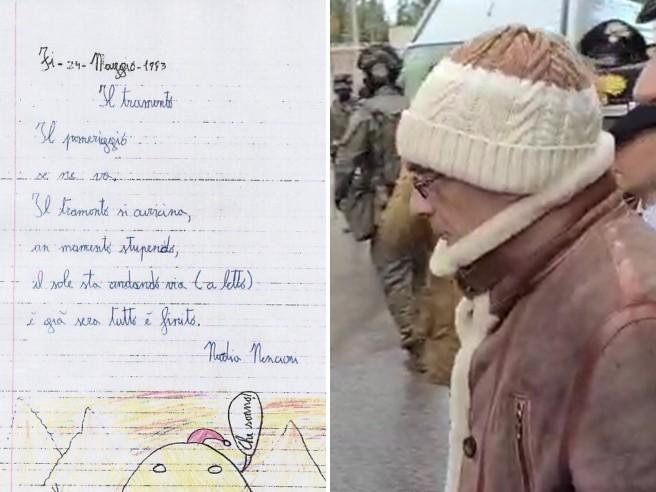 Fi - 24 - Maggio - 1993
Il tramonto
Il pomeriggio
se ne va.
Il tramonto si avvicina,
un momento stupendo,
il sole sta andando via (a letto)
è già sera tutto è finito.
Nadia Nencioni
Che sonno!